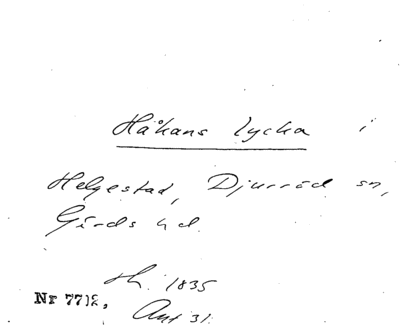 Håkans lycka i
Helgestad, Djurröd sn,
Gärds hd.
h. 1835
Nr 7712.
Ant 31.